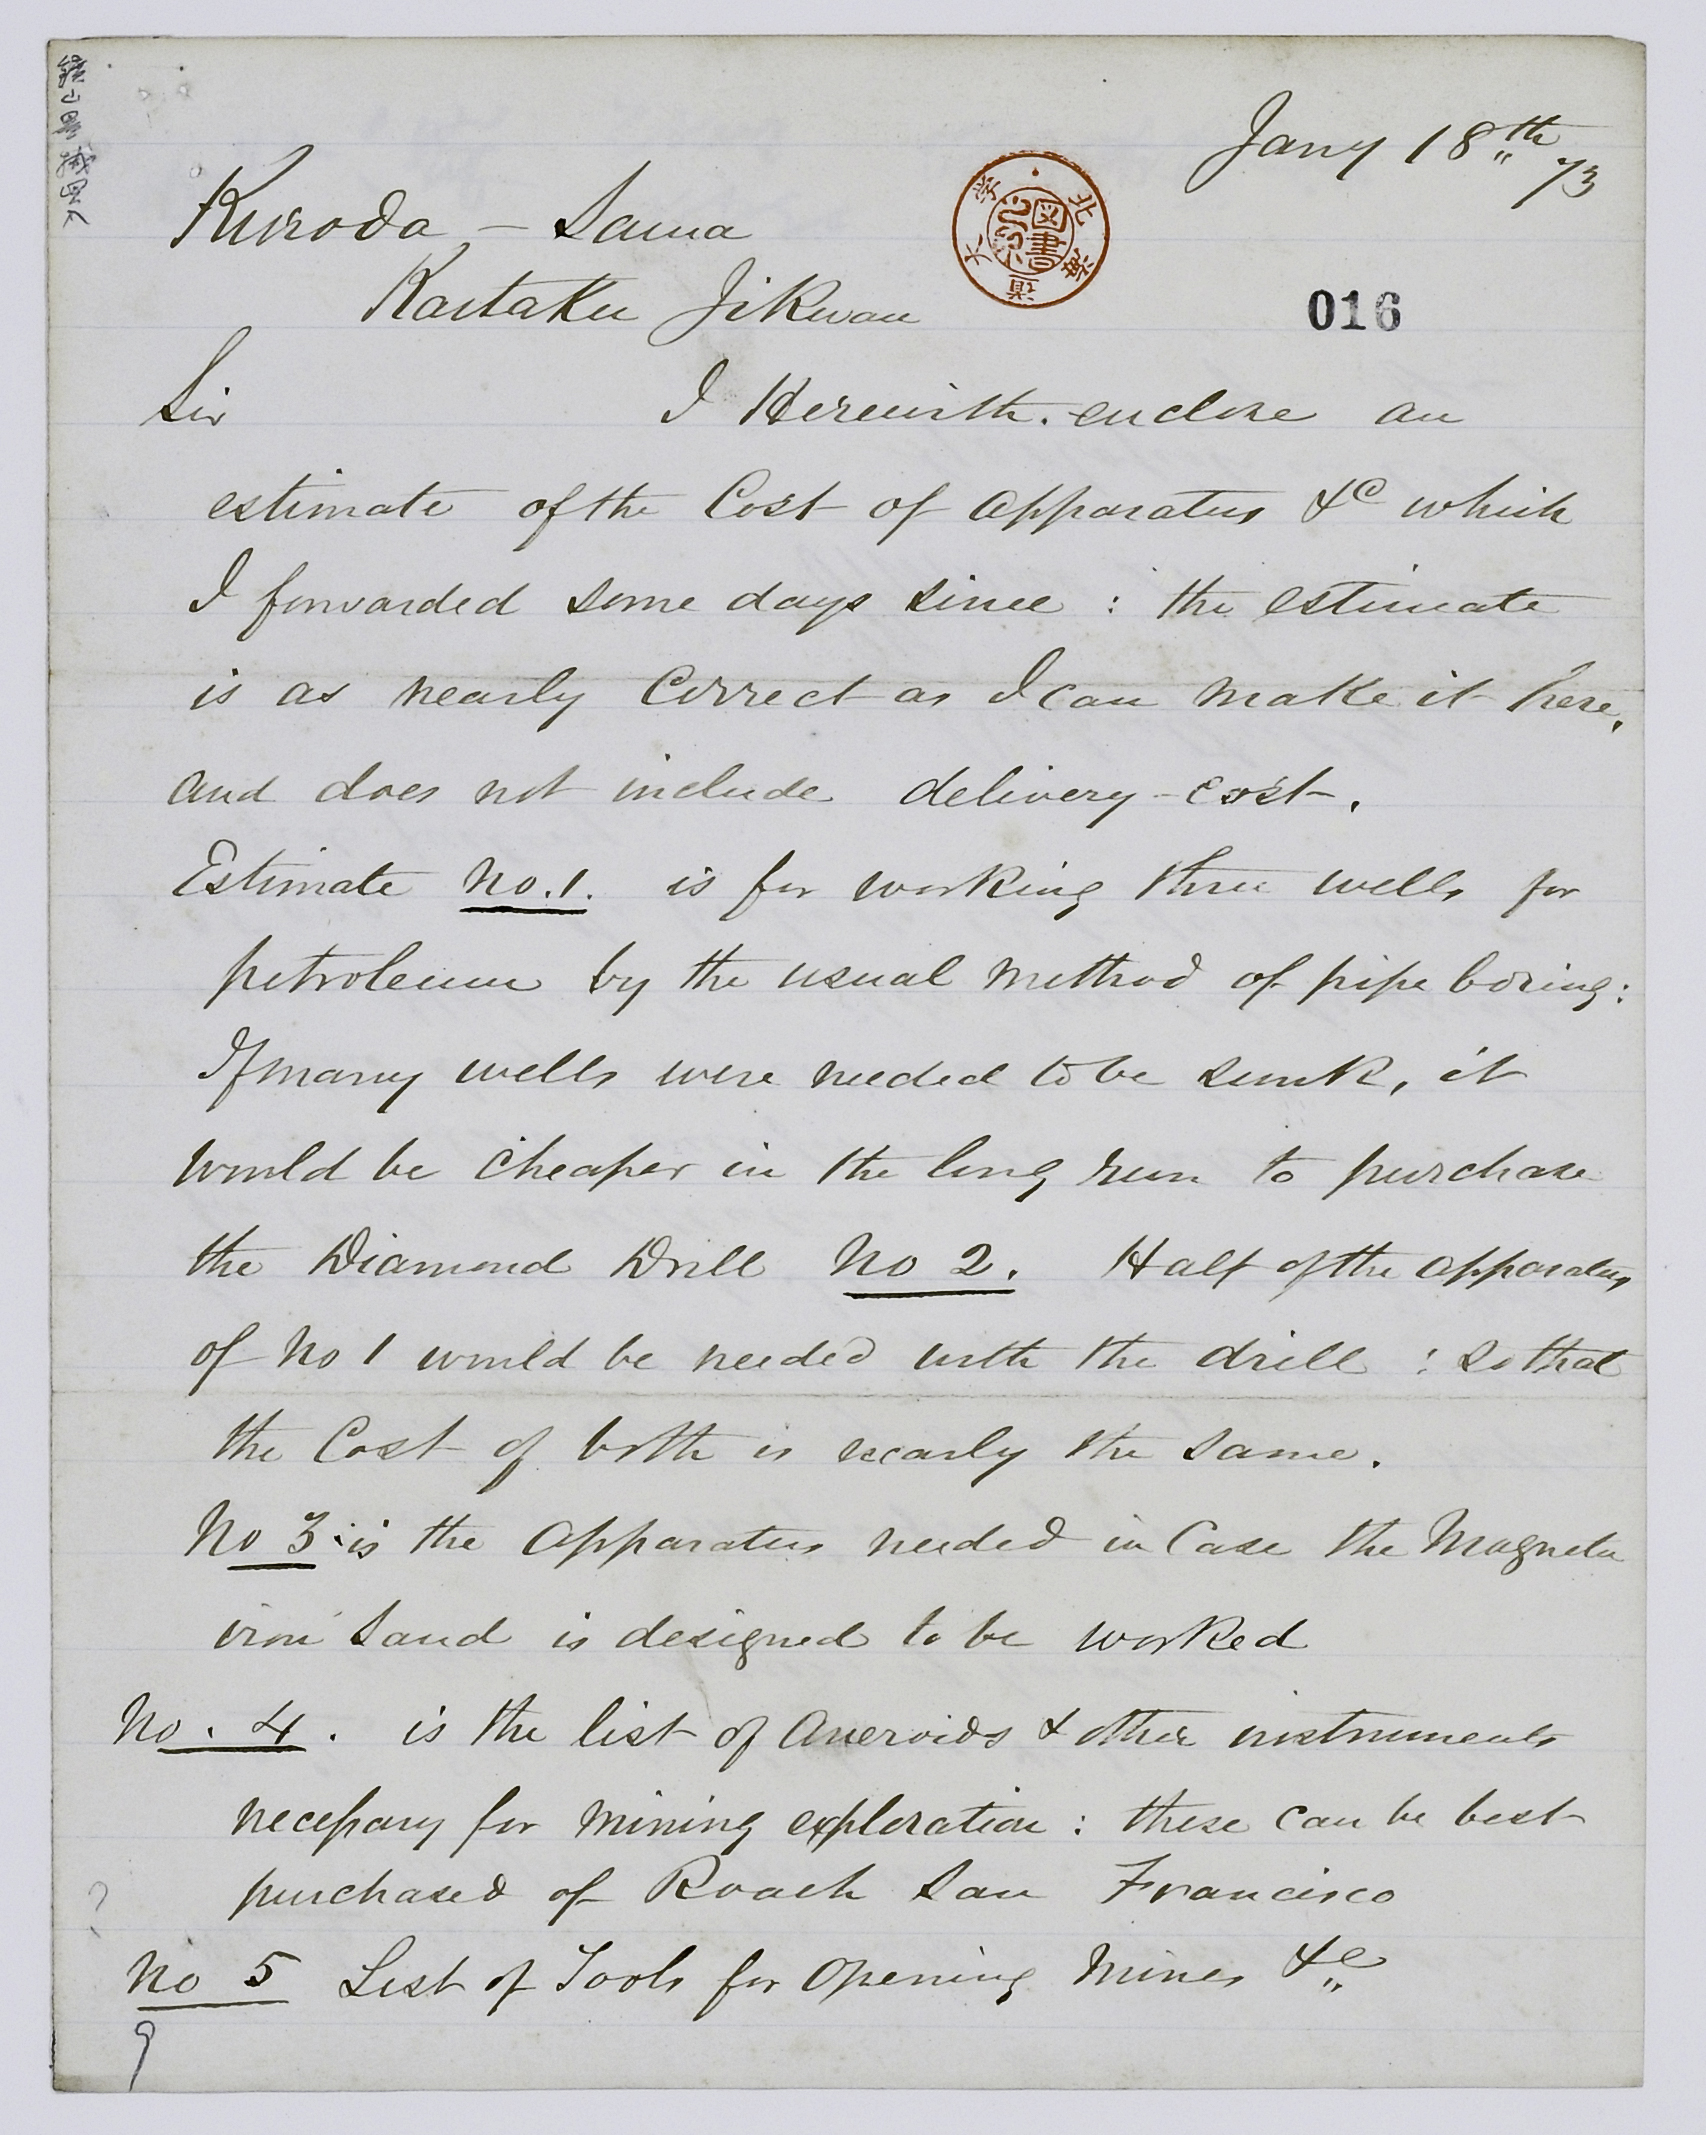 Jany 18th 73
Kuroda - Sama
Kaitaku Jikwan
北海道大学
図書
016
Sir I Herewith enclose an
estimate of the Cost of apparatus &c which
I forwarded some days since : the estimate
is as nearly Correct as I can make it here,
and does not include delivery - cost.
Estimate No. 1. is for working three wells for
petroleum by the usual method of pipe boring:
If many wells were needed to be sunk, it
would be cheaper in the long run to purchase
the Diamond Drill No 2. Half of the apparatus
of No 1 would be needed with the drill : so that
the Cost of both is nearly the same.
No 3 is the apparatus needed in Case the Magnetic
iron sand is designed to be worked
No. 4. is the list of aneroids & other instruments
necessary for mining exploration : these can be best
purchased of Roach San Francisco
?
No 5 List of Tools for opening Mines &c
9